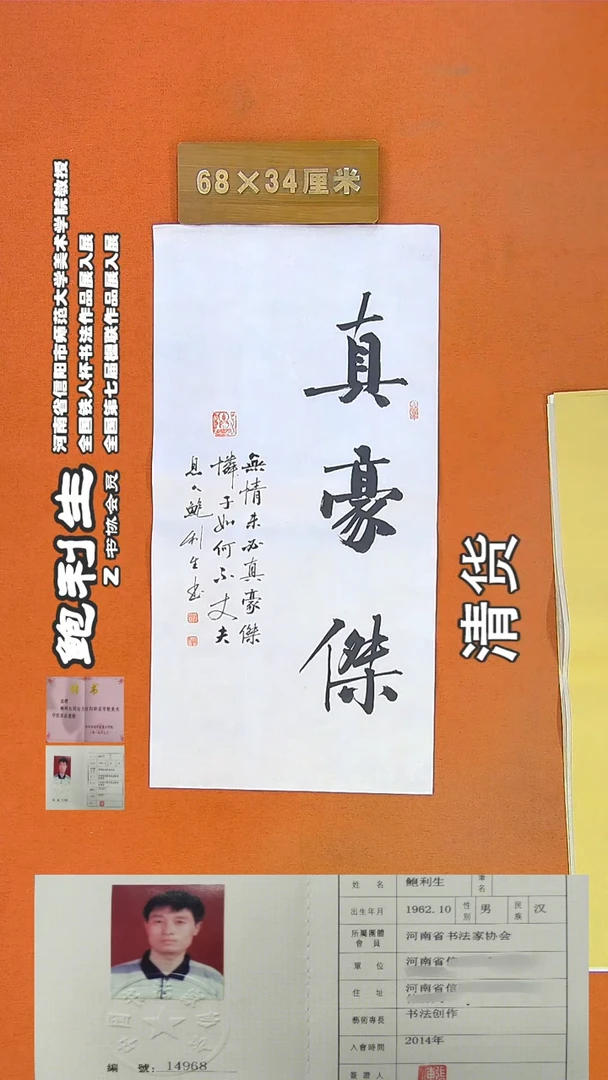 68×34厘米
真豪傑
無情未必真豪傑
憐子如何不丈夫
鮑利生书
河南省信阳市师范大学美术学院教授
全国铁人杯书法作品展入展
全国第七届楹联作品展入展
鲍利生
Z书协会员
清货
姓名 鲍利生 筆名
出生年月 1962.10 性别 男 民族 汉
所屬團體會員 河南省书法家协会
單位 河南省信
住址 河南省信
藝術專長 书法创作
入會時間 2014年
簽證人
編號：14968